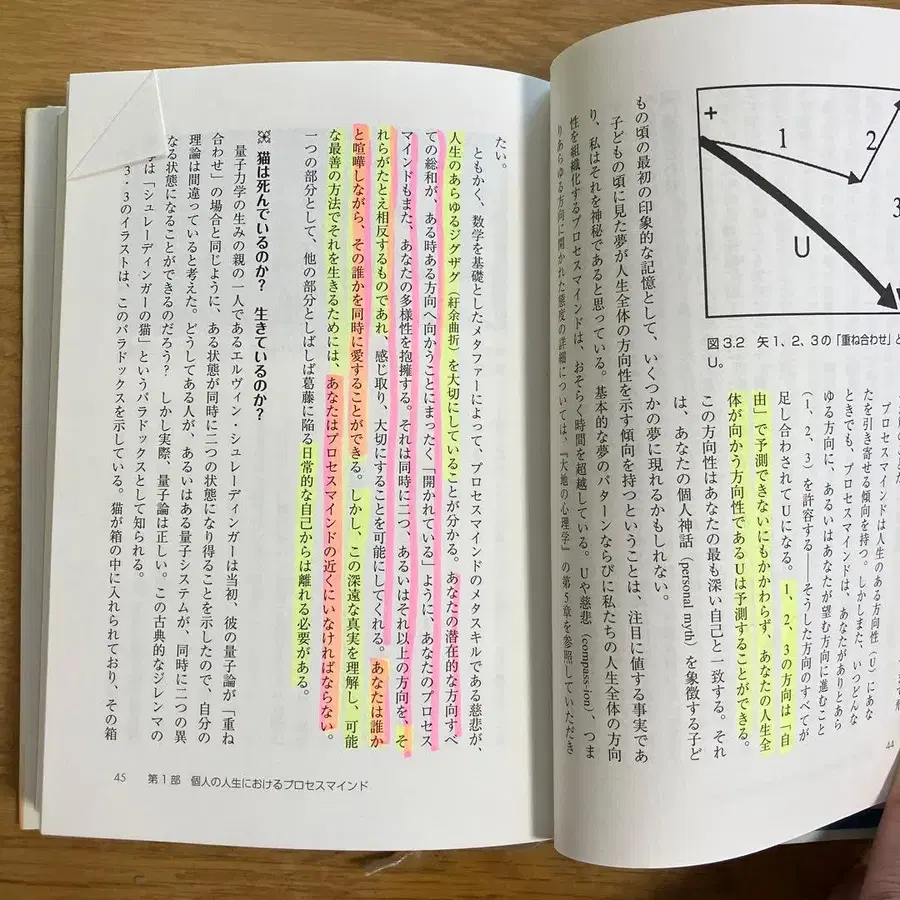 +
1
2
3
U
図3.2 矢1、2、3の「重ね合わせ」と
U。
プロセスマインドは人生のある方向性（U）にあな
たを引き寄せる傾向を持つ。しかしまた、いつどんな
ときでも、プロセスマインドは、あなたがありとあら
ゆる方向に、あるいはあなたが望む方向に進むこと
（1、2、3）を許容する――そうした方向のすべてが
足し合わされてUになる。1、2、3の方向は「自
由」で予測できないにもかかわらず、あなたの人生全
体が向かう方向性であるUは予測することができる。
この方向性はあなたの最も深い自己と一致する。それ
は、あなたの個人神話（personal myth）を象徴する子ど
もの頃の最初の印象的な記憶として、いくつかの夢に現れるかもしれない。
子どもの頃に見た夢が人生全体の方向性を示す傾向を持つということは、注目に値する事実であ
り、私はそれを神秘であると思っている。基本的な夢のパターンならびに私たちの人生全体の方向
性を組織化するプロセスマインドは、おそらく時間を超越している。Uや慈悲（compass-ion）、つま
りあらゆる方向に開かれた態度の詳細については、『大地の心理学』の第5章を参照していただき
44
たい。
ともかく、数学を基礎としたメタファーによって、プロセスマインドのメタスキルである慈悲が、
人生のあらゆるジグザグ（紆余曲折）を大切にしていることが分かる。あなたの潜在的な方向すべ
ての総和が、ある時ある方向へ向かうことにまったく「開かれている」ように、あなたのプロセス
マインドもまた、あなたの多様性を抱擁する。それは同時に二つ、あるいはそれ以上の方向を、そ
れらがたとえ相反するものであれ、感じ取り、大切にすることを可能にしてくれる。あなたは誰か
と喧嘩しながら、その誰かを同時に愛することができる。しかし、この深遠な真実を理解し、可能
な最善の方法でそれを生きるためには、あなたはプロセスマインドの近くにいなければならない。
一つの部分として、他の部分としばしば葛藤に陥る日常的な自己からは離れる必要がある。
猫は死んでいるのか？ 生きているのか？
量子力学の生みの親の一人であるエルヴィン・シュレーディンガーは当初、彼の量子論が「重ね
合わせ」の場合と同じように、ある状態が同時に二つの状態になり得ることを示したので、自分の
理論は間違っていると考えた。どうしてある人が、あるいはある量子システムが、同時に二つの異
なる状態になることができるのだろう？ しかし実際、量子論は正しい。この古典的なジレンマの
は「シュレーディンガーの猫」というパラドックスとして知られる。
3・3のイラストは、このパラドックスを示している。猫が箱の中に入れられており、その箱
45 第1部 個人の人生におけるプロセスマインド